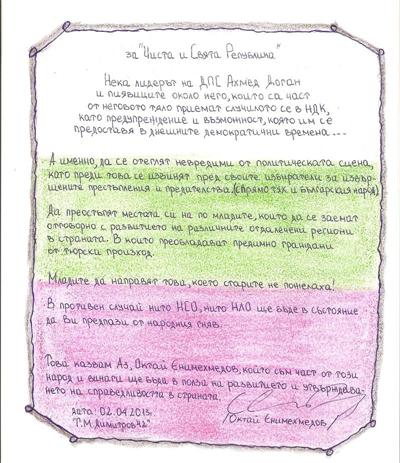 за "Чиста и Свята Република"
Нека лидерът на ДПС Ахмед Доган
и пиявиците около него, които са част
от неговото тяло приемат случилото се в НДК,
като предупреждение и възможност, която им се
предоставя в днешните демократични времена...
А именно, да се отеглят невредими от политическата сцена,
като преди това се извинят пред своите избиратели за извър-
шените престъпления и предателства. (спрямо тях и българския народ)
Да преостъпят местата си на по младите, които да се заемат
отговорно с развитието на различните отдалечени региони
в страната. В които преобладават предимно граждани
от тюрски произход.
Младите да направят това, което старите не пожелаха!
В противен случай нито НСО, нито НЛО ще бъде в състояние
да Ви предпази от народния гняв.
Това казвам Аз, Октай Енимехмедов, който съм част от този
народ и винаги ще бъда в полза на развитието и утвърждава-
нето на справедливостта в страната.
дата: 02.04.2013г.
"Г.М.Димитров 42"
Октай Енимехмедов